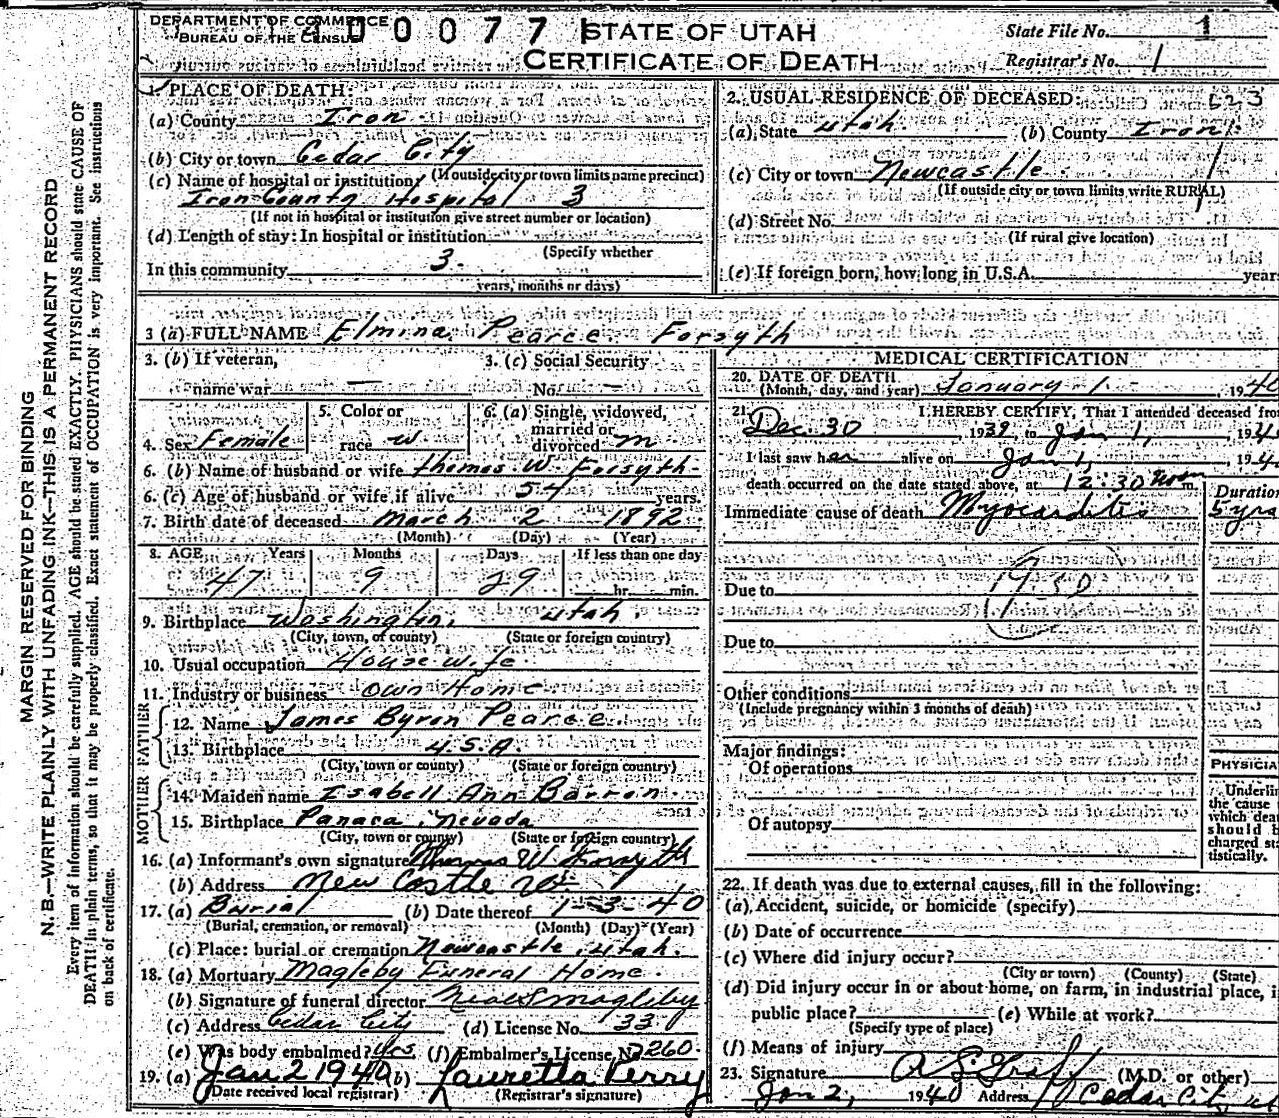 DEPARTMENT OF COMMERCE
BUREAU OF THE CENSUS
0077
STATE OF UTAH
CERTIFICATE OF DEATH
State File No. 1
Registrar's No. 1
MARGIN RESERVED FOR BINDING
N. B.—WRITE PLAINLY WITH UNFADING INK—THIS IS A PERMANENT RECORD
Every item of information should be carefully supplied. AGE should be stated EXACTLY. PHYSICIANS should state CAUSE OF
DEATH in plain terms, so that it may be properly classified. Exact statement of OCCUPATION is very important. See instructions
on back of certificate.
1. PLACE OF DEATH:
(a) County Iron
(b) City or town Cedar City
(If outside city or town limits name precinct)
(c) Name of hospital or institution:
Iron County Hospital 3
(If not in hospital or institution give street number or location)
(d) Length of stay: In hospital or institution
(Specify whether
In this community 3.
years, months or days)
2. USUAL RESIDENCE OF DECEASED:
(a) State Utah. (b) County Iron
(c) City or town Newcastle
(If outside city or town limits, write RURAL)
(d) Street No.
(If rural give location)
(e) If foreign born, how long in U.S.A. years
3 (a) FULL NAME Elmina Pearce Forsyth
3. (b) If veteran,
name war —
3. (c) Social Security
No. —
4. Sex Female
5. Color or
race W.
6. (a) Single, widowed,
married or
divorced m
6. (b) Name of husband or wife Thomas W. Forsyth
6. (c) Age of husband or wife if alive 54 years.
7. Birth date of deceased March 2 1892
(Month) (Day) (Year)
8. AGE Years Months Days If less than one day
47 9 29 hr. min.
9. Birthplace Washington, Utah.
(City, town, or county) (State or foreign country)
10. Usual occupation House wife
11. Industry or business Own Home
FATHER
12. Name James Byron Pearce
13. Birthplace U.S.A.
(City, town or county) (State or foreign country)
MOTHER
14. Maiden name Isabell Ann Barron.
15. Birthplace Panaca, Nevada
(City, town or county) (State or foreign country)
16. (a) Informant's own signature Thomas W. Forsyth
(b) Address New Castle Ut
17. (a) Burial (b) Date thereof 1-3-40
(Burial, cremation, or removal) (Month) (Day) (Year)
(c) Place: burial or cremation Newcastle, Utah.
18. (a) Mortuary Magleby Funeral Home.
(b) Signature of funeral director Neal S Magleby
(c) Address Cedar City (d) License No. 330
(e) Was body embalmed? Yes (f) Embalmer's License No 260
19. (a) Jan 2 1940 (b) Lauretta Perry
(Date received local registrar) (Registrar's signature)
MEDICAL CERTIFICATION
20. DATE OF DEATH
(Month, day, and year) January 1. 1940
21. I HEREBY CERTIFY, That I attended deceased from
Dec 30, 1939, to Jan 1, 194
I last saw her alive on Jan 1, 194
death occurred on the date stated above, at 12:30 Noon m.
Immediate cause of death Myocarditis
Duration
5 yrs
Due to
Due to
Other conditions
(Include pregnancy within 3 months of death)
Major findings:
Of operations
Of autopsy
PHYSICIA
Underlin
the cause
which dea
should b
charged sta
tistically.
22. If death was due to external causes, fill in the following:
(a) Accident, suicide, or homicide (specify)
(b) Date of occurrence
(c) Where did injury occur?
(City or town) (County) (State)
(d) Did injury occur in or about home, on farm, in industrial place, i
public place? (e) While at work?
(Specify type of place)
(f) Means of injury
23. Signature A L Graff (M.D. or other)
Jan 2, 1940 Address Cedar City